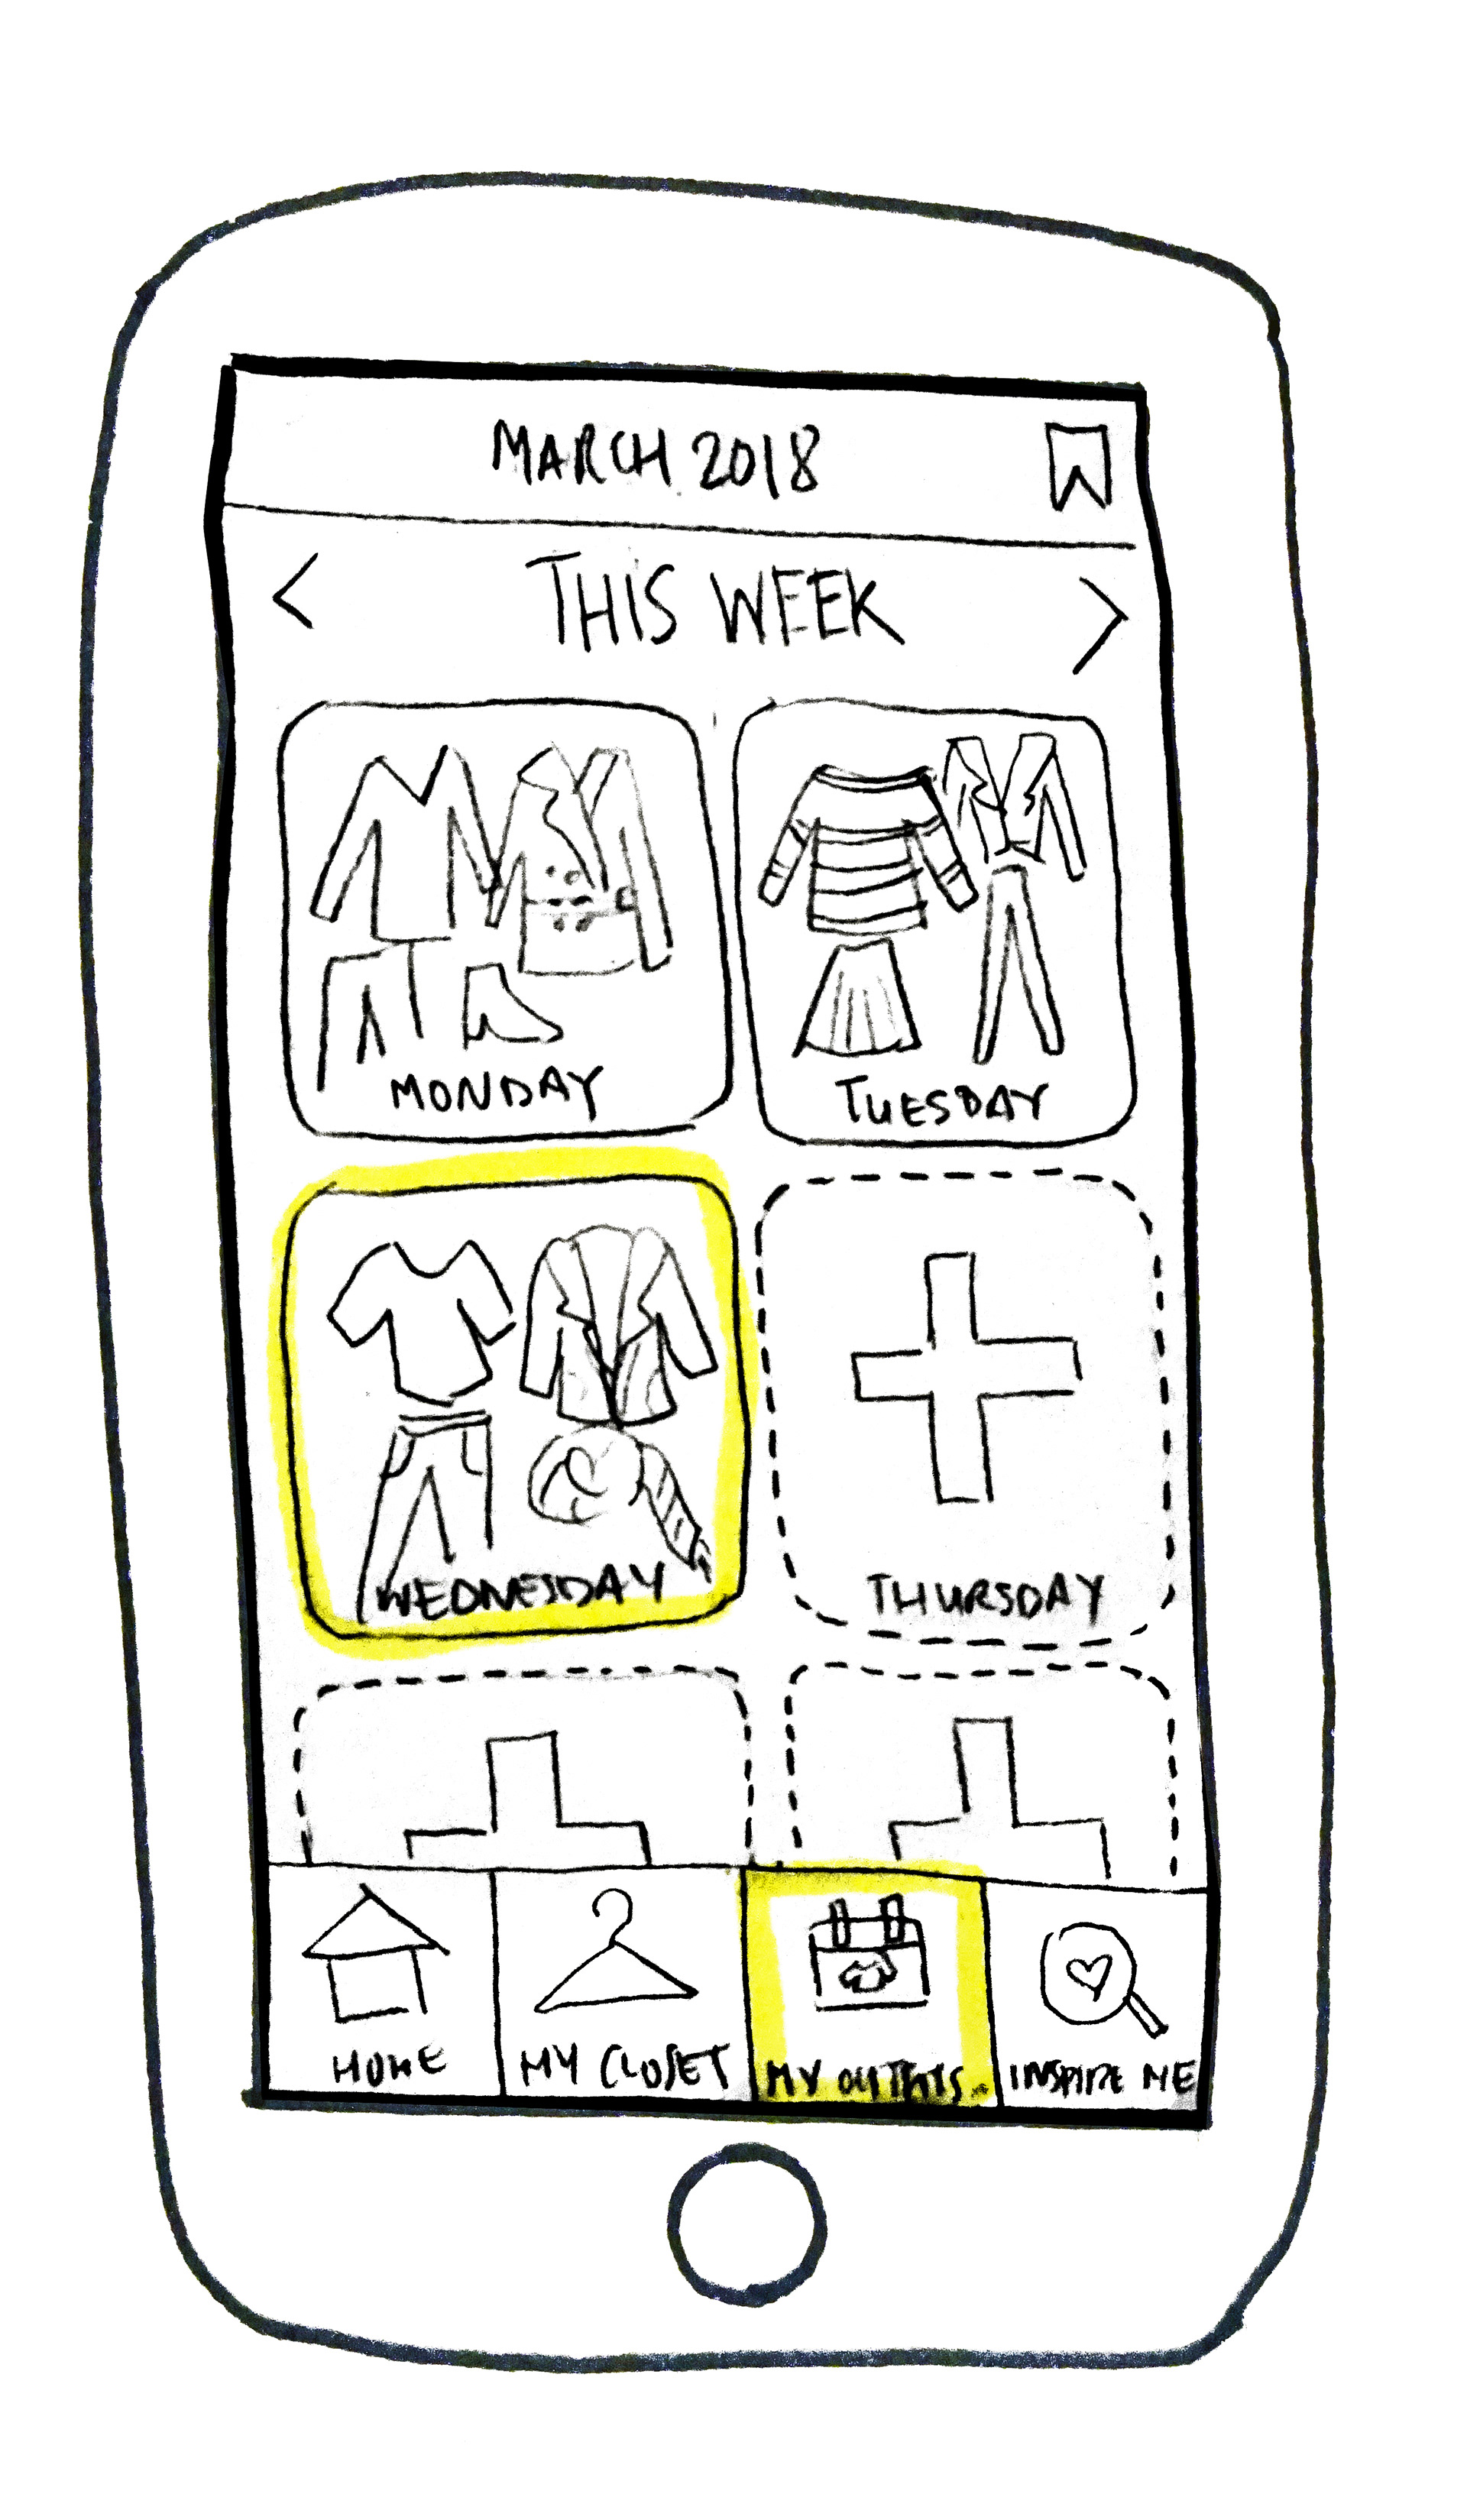 MARCH 2018
THIS WEEK
MONDAY
TUESDAY
WEDNESDAY
THURSDAY
HOME
MY CLOSET
MY OUTFITS
INSPIRE ME